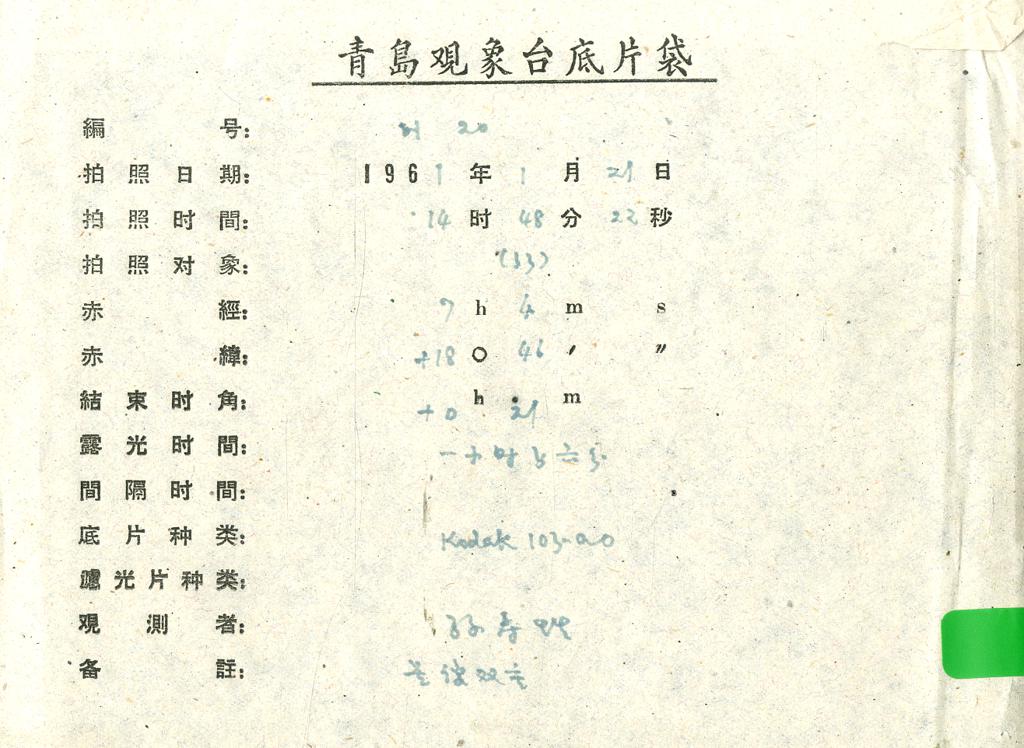 青島观象台底片袋
編号: 20
拍照日期: 1961年1月21日
拍照时間: 14时48分22秒
拍照对象: (33)
赤經: 7h 4m s
赤緯: +18° 46′ ″
結束时角: +0h 21m
露光时間:
間隔时間:
底片种类: Kodak 103aO
濾光片种类:
观測者: 孙寿
备註: